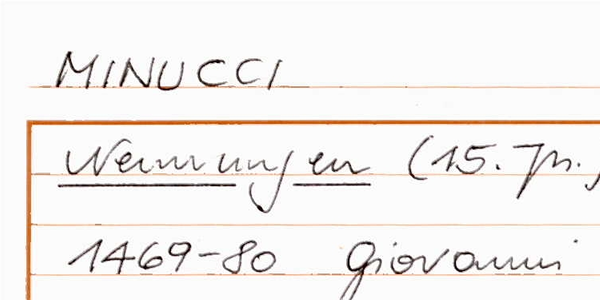 MINUCCI
Nennungen (15. Jh.)
1469-80 Giovanni